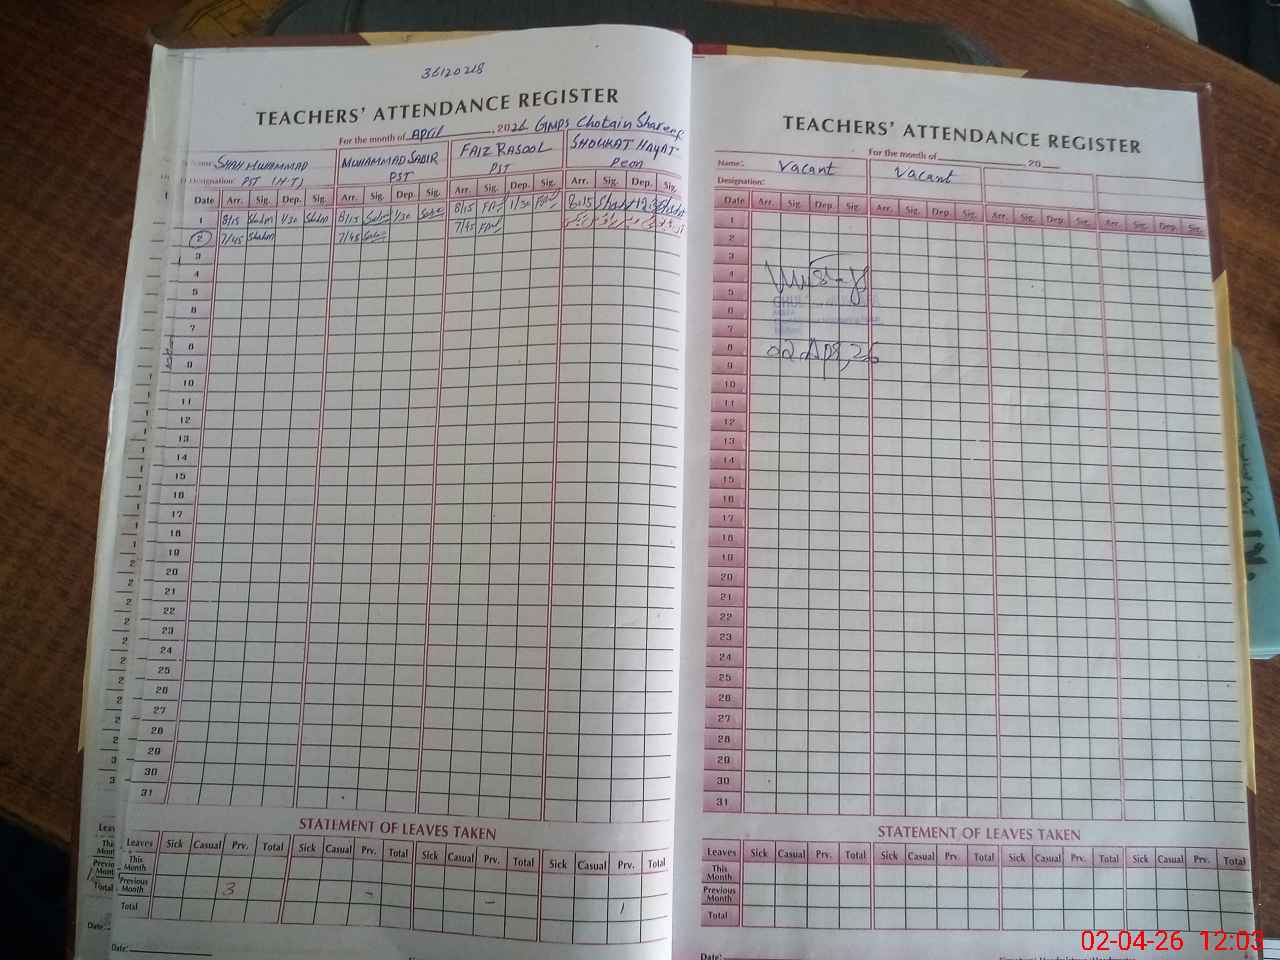 36120218
TEACHERS' ATTENDANCE REGISTER
For the month of April, 2026 GMPS Chotain Shareef
Name: SHAH MUHAMMAD MUHAMMAD SABIR FAIZ RASOOL SHOUKAT HAYAT
Designation: PST (H-T) PST PST Peon
Date Arr. Sig. Dep. Sig. Arr. Sig. Dep. Sig. Arr. Sig. Dep. Sig. Arr. Sig. Dep. Sig.
1 8/15 1/30 8/15 1/30 8/15 1/30 8:15
2 7/45 7/45 7/45
3
4
5
6
7
8
9
10
11
12
13
14
15
16
17
18
19
20
21
22
23
24
25
26
27
28
29
30
31
STATEMENT OF LEAVES TAKEN
Leaves Sick Casual Prv. Total Sick Casual Prv. Total Sick Casual Prv. Total Sick Casual Prv. Total
This Month
Previous Month 3 - -
Total 1
Date:
TEACHERS' ATTENDANCE REGISTER
For the month of 20
Name: Vacant Vacant
Designation:
Date Arr. Sig. Dep. Sig. Arr. Sig. Dep. Sig. Arr. Sig. Dep. Sig. Arr. Sig. Dep. Sig.
1
2
3
4
5
6
7
8
02 Apr, 26
9
10
11
12
13
14
15
16
17
18
19
20
21
22
23
24
25
26
27
28
29
30
31
STATEMENT OF LEAVES TAKEN
Leaves Sick Casual Prv. Total Sick Casual Prv. Total Sick Casual Prv. Total Sick Casual Prv. Total
This Month
Previous Month
Total
Date:
02-04-26 12:03